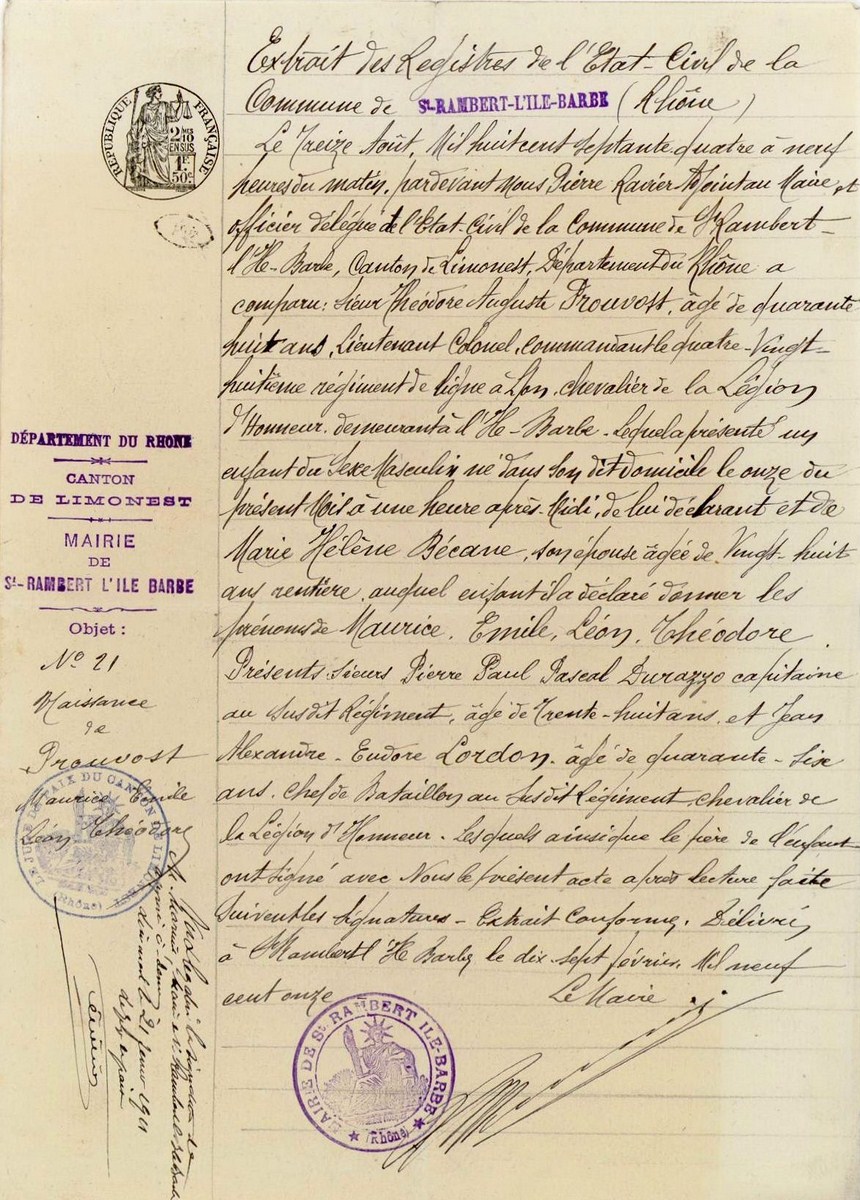 Extrait des Registres de l'Etat-Civil de la
Commune de St-RAMBERT-L'ILE-BARBE (Rhône)
Le Treize Août, Mil huit cent septante quatre à neuf
heures du matin, pardevant Nous Pierre Ravier Adjoint au Maire, et
officier délégué de l'Etat-Civil de la Commune de St Rambert-
l'Ile-Barbe, Canton de Limonest, Département du Rhône a
comparu: Sieur Théodore Auguste Prouvost, âgé de quarante
huit ans, Lieutenant Colonel, commandant le quatre-Vingt-
huitième régiment de ligne à Lyon, chevalier de la Légion
d'Honneur, demeurant à l'Ile-Barbe. Lequel a présenté un
enfant du Sexe Masculin né dans son dit domicile le onze du
présent Mois à une heure après-Midi, de lui déclarant et de
Marie Hélène Bécane, son épouse âgée de Vingt-huit
ans rentière, auquel enfant il a déclaré donner les
prénoms de Maurice, Emile, Léon, Théodore
Présents: Sieurs Pierre Paul Pascal Durazzo capitaine
au susdit Régiment, âgé de Trente-huit ans, et Jean
Alexandre-Eudore Lordon, âgé de quarante-Six
ans, chef de Bataillon au susdit Régiment chevalier de
la Légion d'Honneur. Lesquels ainsi que le père de l'enfant
ont signé avec Nous le présent acte après lecture faite
Suivent les Signatures - Extrait Conforme, Délivré
à St Rambert l'Ile Barbe le dix-sept février, Mil neuf
cent onze Le Maire
RÉPUBLIQUE FRANÇAISE
2/10
EN SUS
1F
50c
DÉPARTEMENT DU RHONE
CANTON
DE LIMONEST
MAIRIE
DE
St-RAMBERT L'ILE BARBE
Objet:
No 21
Naissance
de
Prouvost
Maurice Emile
Léon Théodore
LE JUGE DE PAIX DU CANTON DE LIMONEST
(Rhône)
MAIRIE DE St RAMBERT ILE-BARBE
(Rhône)